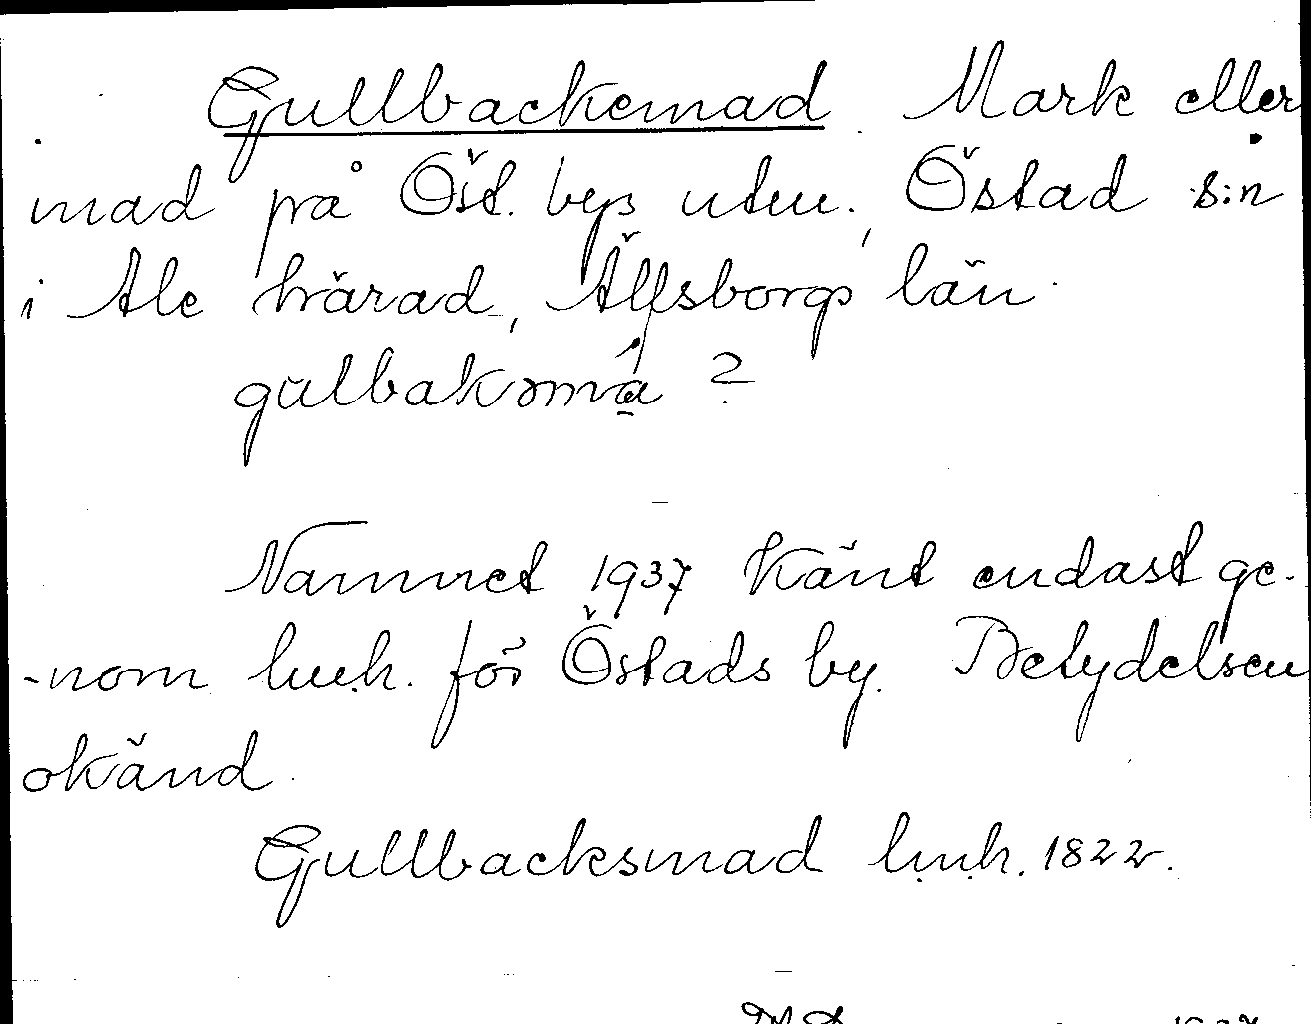 Gullbackemad. Mark eller
mad på Öst. bys utm., Östad s:n
i Ale härad, Älfsborgs län.
gu̇lbakəmá̱ ?
Namnet 1937 känt endast ge-
-nom lmh. för Östads by. Betydelsen
okänd.
Gullbacksmad lmh. 1822.